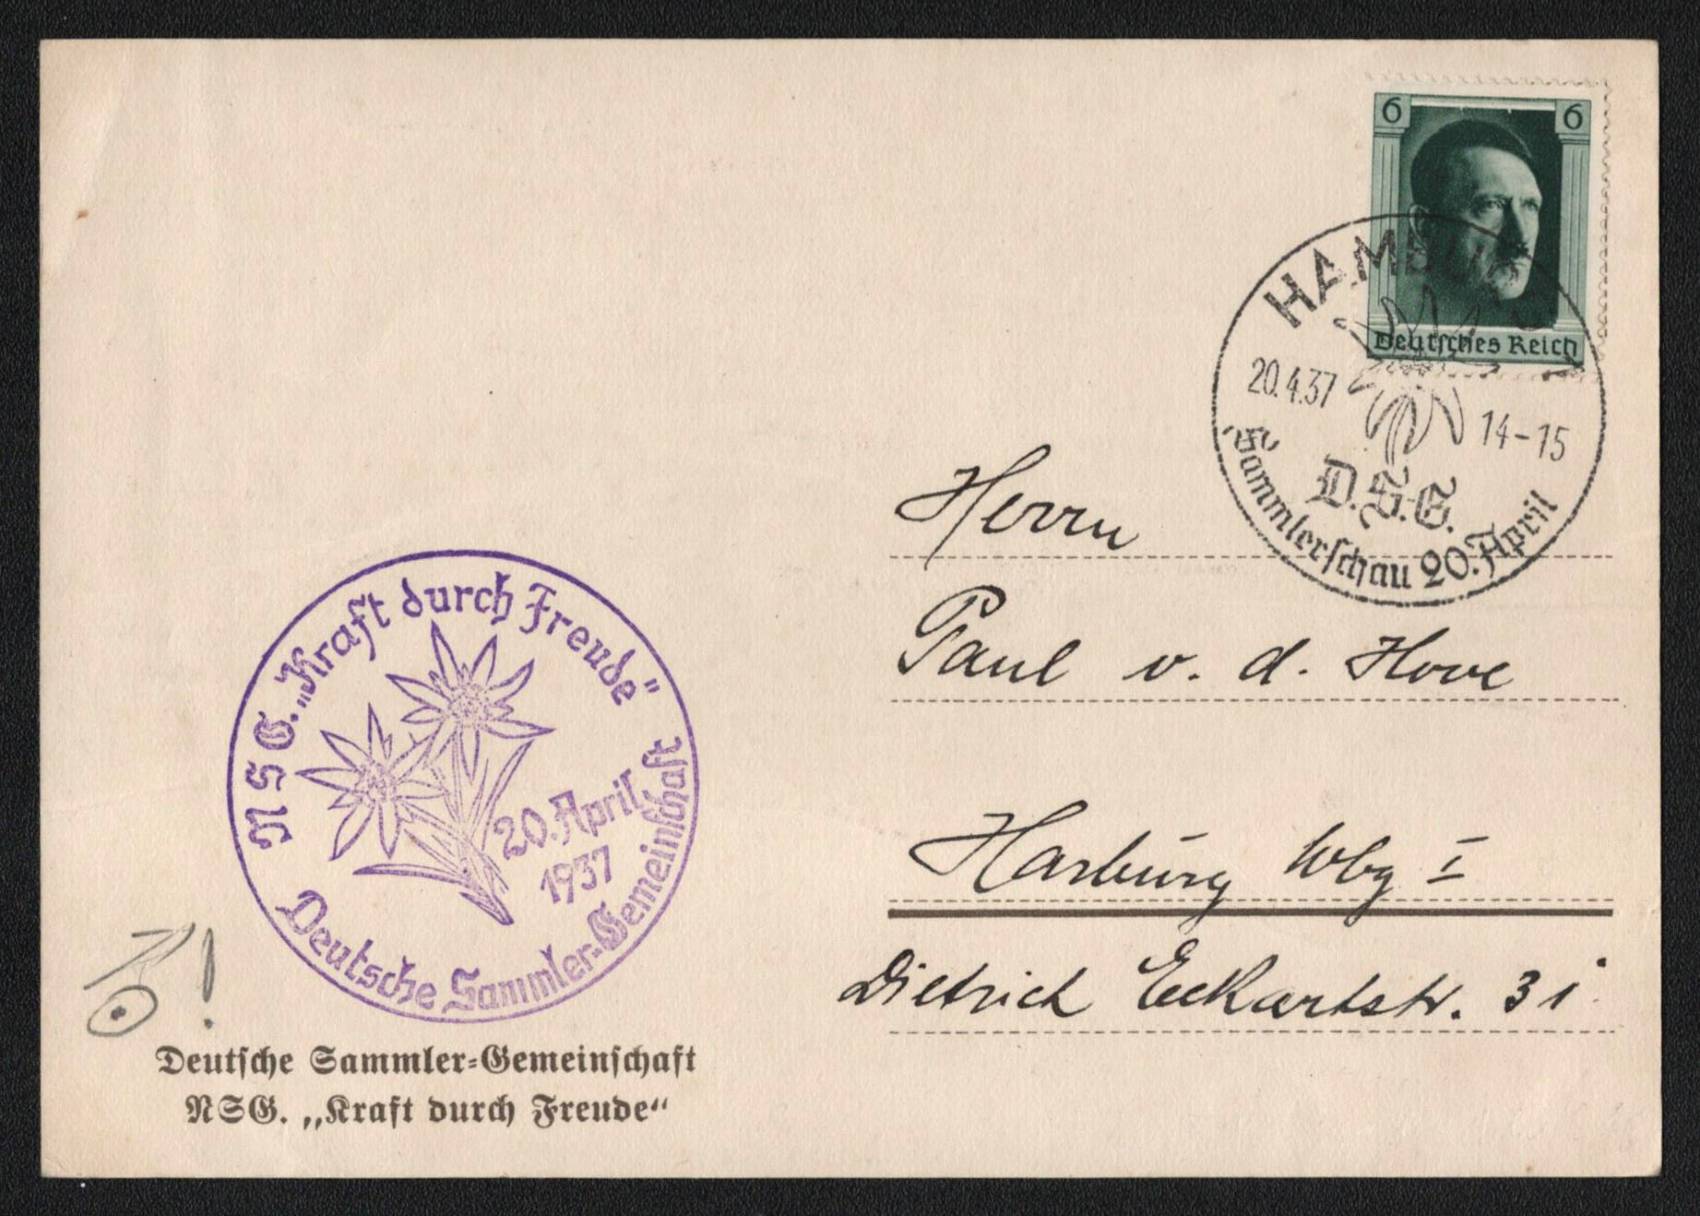 6 6
Deutsches Reich
HAMBURG
20.4.37
14-15
D.S.G.
Sammlerschau 20. April
Herrn
Paul v. d. Hove
Harburg Wbg I
Dietrich Eckartstr. 31
NSG. „Kraft durch Freude"
20. April
1937
Deutsche Sammler-Gemeinschaft
Deutsche Sammler-Gemeinschaft
NSG. „Kraft durch Freude“